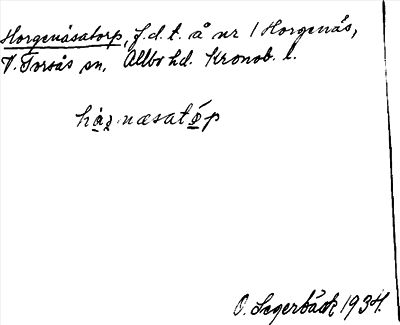 Horgenåsatorp, f.d.t. å nr 1 Horgenås,
V. Torsås sn, Allbo hd. Kronob. l.
håʒnæsatóp
O. Segerbäck 1934.